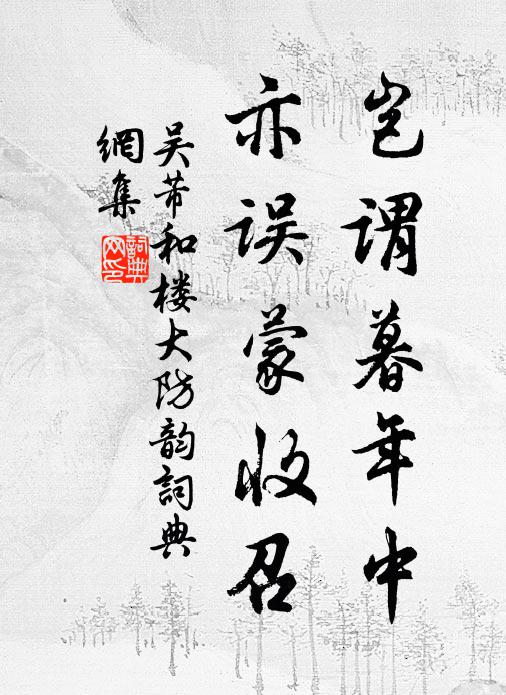 岂谓暮年中
亦误蒙收召
吴芾和楼大防韵词典
网集
词典网印